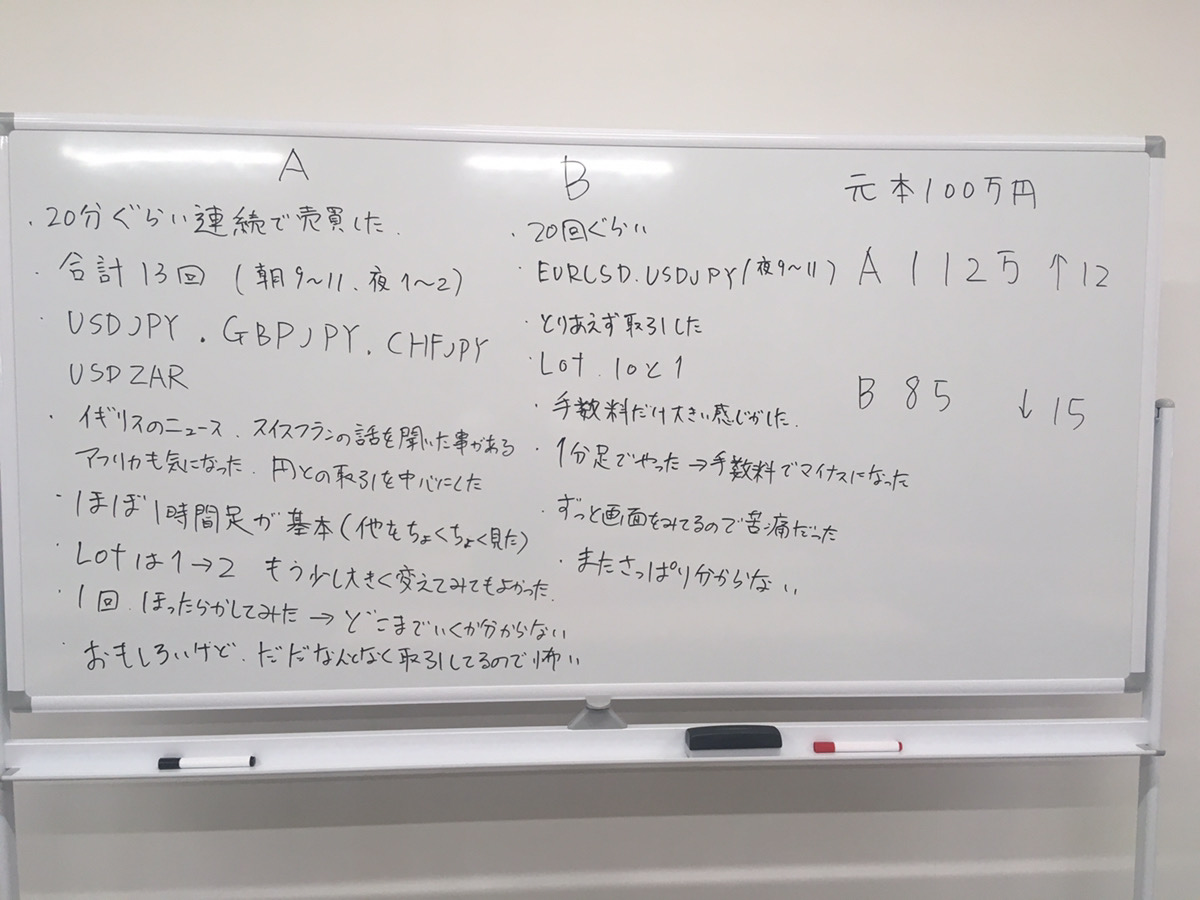 A
・20分ぐらい連続で売買した.
・合計13回(朝9〜11、夜1〜2)
・USDJPY.GBPJPY.CHFJPY
USDZAR
・イギリスのニュース、スイスフランの話を聞いた事がある
アフリカも気になった、円との取引を中心にした
・ほぼ1時間足が基本(他をちょくちょく見た)
・Lotは1→2 もう少し大きく変えてみてもよかった.
・1回、ほったらかしてみた→どこまでいくか分からない
・おもしろいけど、ただなんとなく取引してるので怖い
B
・20回ぐらい
・EURCSD.USDJPY(夜9〜11)
・とりあえず取引した
・Lot.10と1
・手数料だけ大きい感じがした.
・1分足でやった→手数料でマイナスになった
・ずっと画面をみてるので苦痛だった
・まださっぱり分からない
元本100万円
A 112万 ↑12
B 85 ↓15